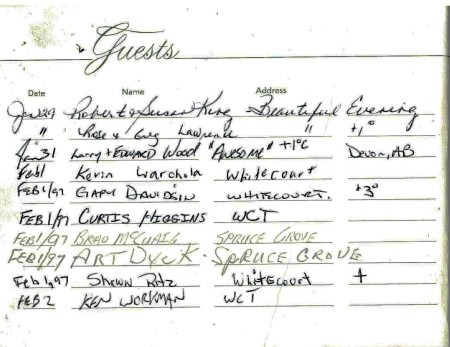 Guests
Date Name Address
Jan 29 Robert & Susan King Beautiful Evening
" Rose & Greg Lawrence " +1°
Jan 31 Larry + EDWARD WOOD "AWESOME" +1°C Devon, AB
Feb 1 Kevin Warchola Whitecourt
FEB 1/97 GARY DAVIDSON WHITECOURT. +3°
FEB 1/97 CURTIS HIGGINS WCT
FEB 1/97 BRAD SPRUCE GROVE
FEB 1/97 ART DYCK - SPRUCE GROVE
Feb 1, 97 Shawn Ritz Whitecourt +
FEB 2 KEN WORKMAN WCT